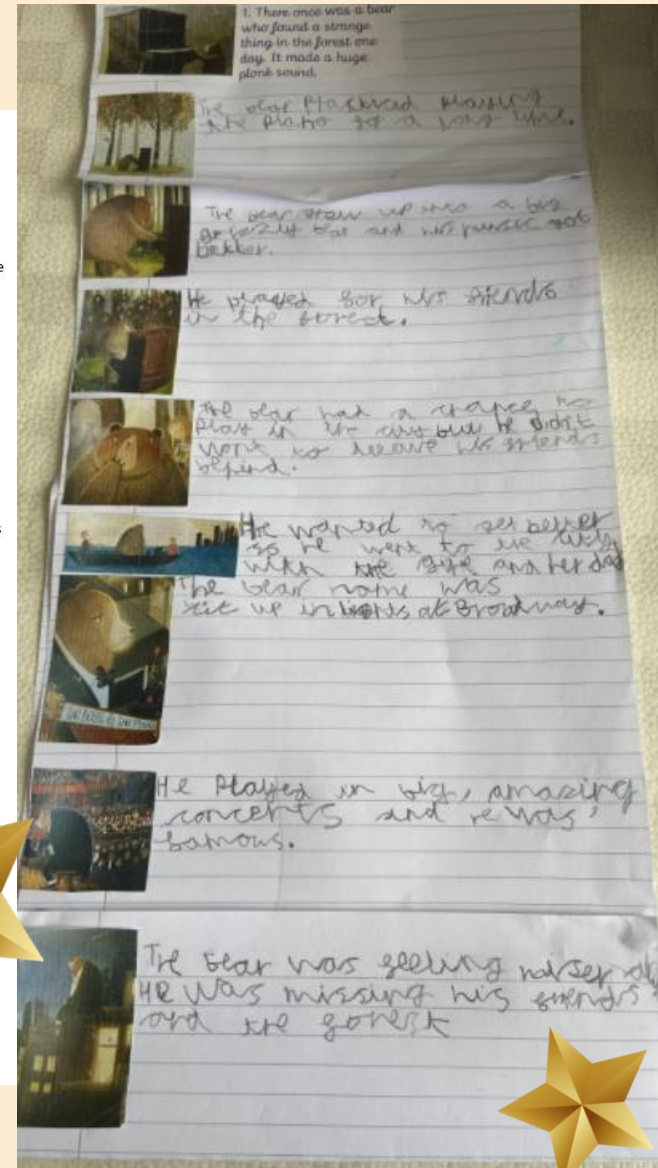 1. There once was a bear
who found a strange
thing in the forest one
day. It made a huge
plonk sound.
The bear playing
the piano for a long time.
The bear grow up into a big
grizzly and his got
better.
He played for his friends
in the forest.
The bear had a to
play in the city but he didn't
to his friends
behind.
He wanted to get better
so he went to the city
with the and her dad
The bear name was
up in at Broadway.
THE BEAR AT THE PIANO
He played in big, amazing
concerts and he was
famous.
The bear was feeling
He was missing his friends
and the forest
e
s